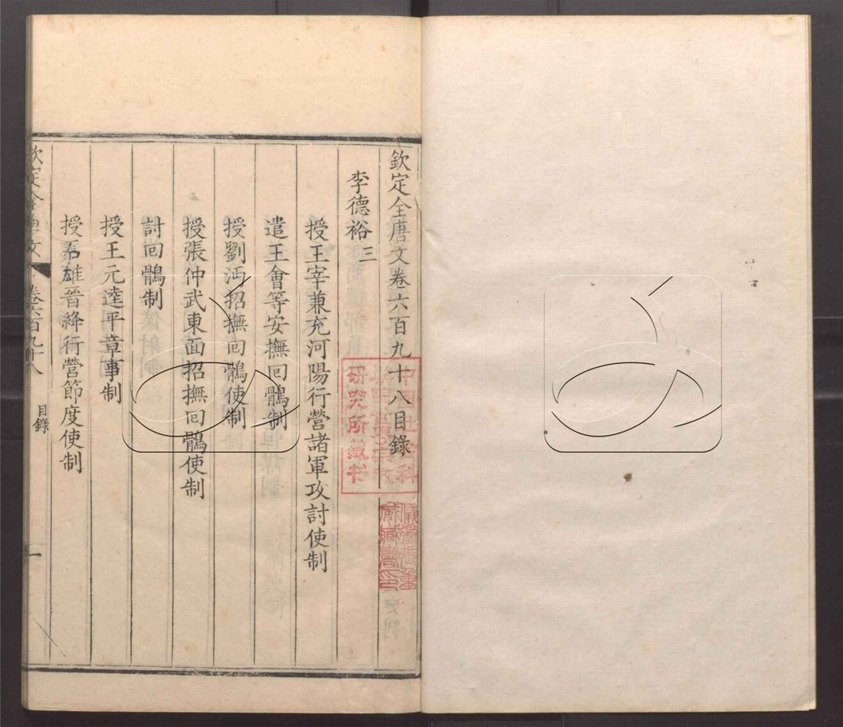 欽定全唐文卷六百九十八目錄
李德裕三
授王宰兼充河陽行營諸軍攻討使制
遣王會等安撫回鶻制
授劉沔招撫回鶻使制
授張仲武東面招撫回鶻使制
討回鶻制
授王元逵平章事制
授石雄晉絳行營節度使制
欽定全唐文 卷六百九十八 目錄 一
研究所藏书